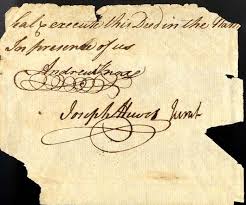 Seal & execute this Deed in the Nam
In presence of us
Andrew Knox
Joseph Hewes Jurat